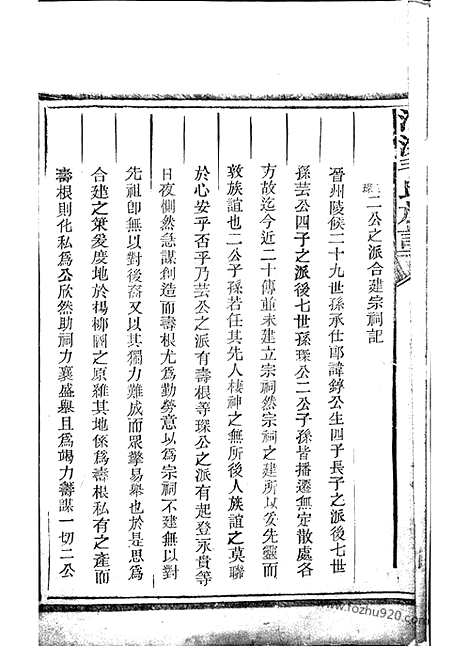 二公之派合建宗祠記
琛
晉州陵侯二十九世孫承仕郎諱錞公生四子長子之派後七世
孫芸公四子之派後七世孫琛公二公子孫皆播遷無定散處各
方故迄今近二十傳並未建立宗祠然宗祠之建所以妥先靈而
敦族誼也二公子孫若任其先人棲神之無所後人族誼之莫聯
於心安乎否乎乃芸公之派有壽根等琛公之派有起登永貴等
日夜惻然急謀創造而壽根尤為勤勞意以為宗祠不建無以對
先祖卽無以對後裔又以其獨力難成而眾擎易舉也於是思為
合建之策爰度地於楊柳圈之原雖其地係為壽根私有之產而
壽根則化私為公欣然助祠力襄盛舉且為竭力籌謀一切二公
www.fozhu920.com